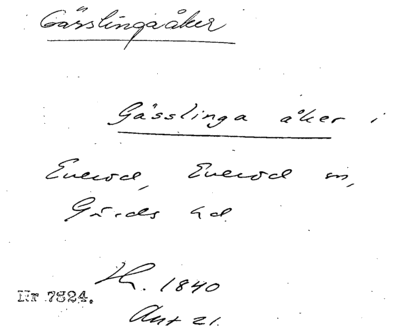 Gässlingaåker
Gässlinga åker i
Everöd, Everöd sn,
Gärds hd.
1840
Nr 7824.
Ant 21.